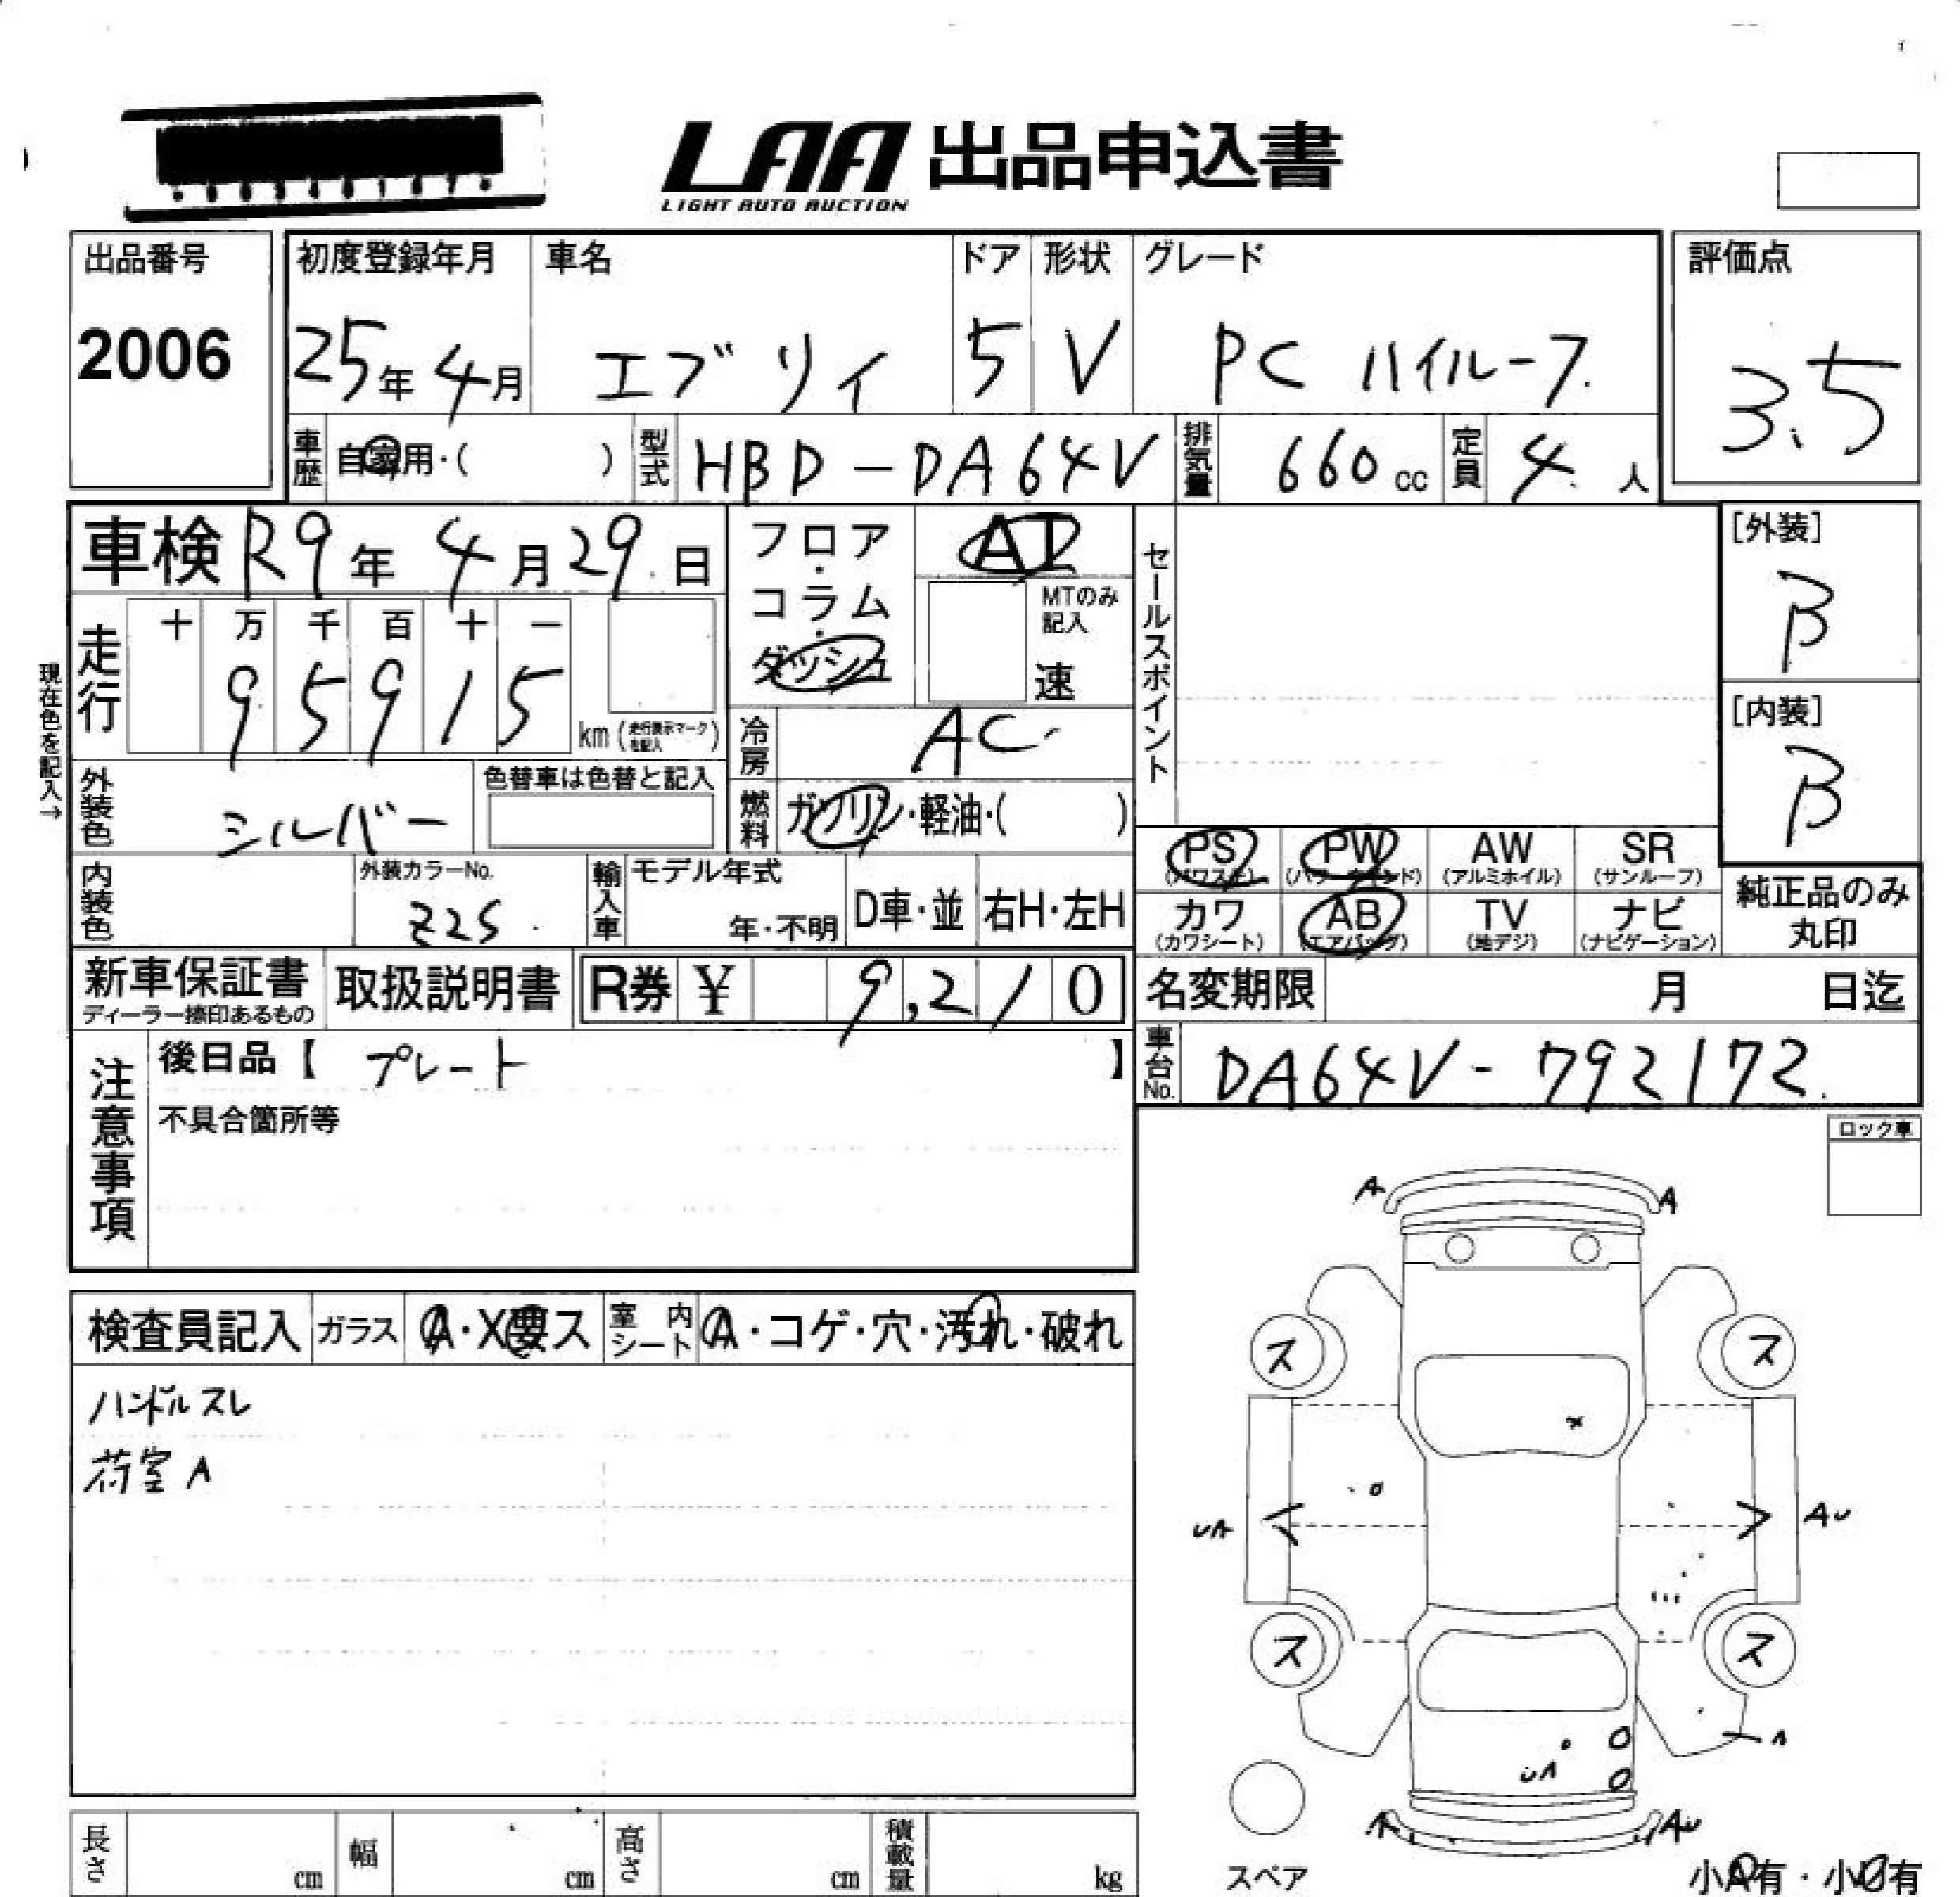 LAA 出品申込書
LIGHT AUTO AUCTION
出品番号 初度登録年月 車名 ドア 形状 グレード 評価点
2006 25年4月 エブリイ 5 V PC ハイルーフ 3.5
車歴 自家用・( ) 型式 HBD-DA64V 排気量 660cc 定員 4人
車検 R9年4月29日 フロア・コラム・ダッシュ AT セールスポイント [外装]
B
MTのみ記入
速
走行 十 万 千 百 十 一
95915 km (走行表示マークを記入)
[内装]
B
現在色を記入→
冷房 AC
外装色 シルバー 色替車は色替と記入 燃料 ガソリン・軽油・( )
PS PW AW SR
(パワステ) (パワーウインド) (アルミホイル) (サンルーフ)
内装色 外装カラーNo. Z2S 輸入車 モデル年式 年・不明 D車・並 右H・左H
カワ AB TV ナビ 純正品のみ
(カワシート) (エアバッグ) (地デジ) (ナビゲーション) 丸印
新車保証書 取扱説明書 R券 ¥ 9,210 名変期限 月 日迄
ディーラー捺印あるもの
注意事項 後日品【 プレート 】 車台No. DA64V-792172
不具合箇所等
ロック車
A A
検査員記入 ガラス A・X要ス 室内シート A・コゲ・穴・汚れ・破れ
ス ス
ハンドルスレ
荷室A
UA AU
ス ス
UA
A AU
長さ cm 幅 cm 高さ cm 積載量 kg
スペア 小A有・小U有